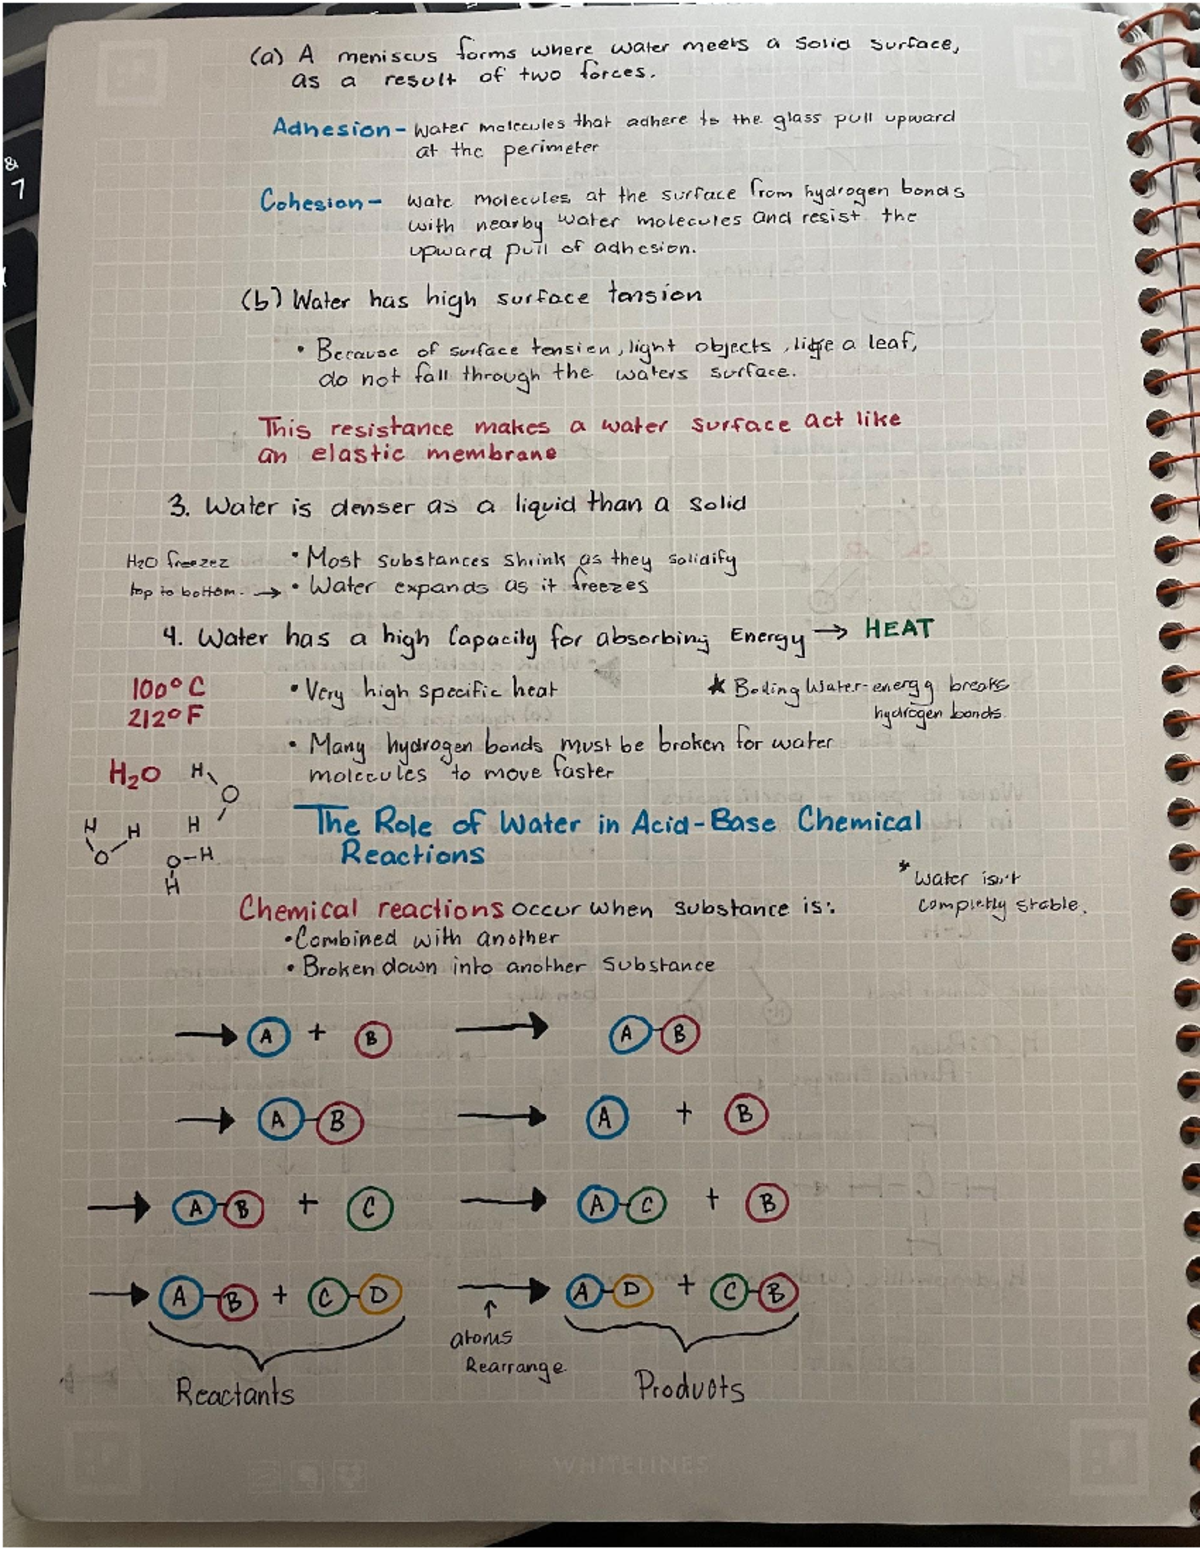 (a) A meniscus forms where water meets a solid surface,
as a result of two forces.
Adhesion - Water molecules that adhere to the glass pull upward
at the perimeter
Cohesion - wate molecules at the surface from hydrogen bonds
with nearby water molecules and resist the
upward pull of adhesion.
(b) Water has high surface tension
• Because of surface tension, light objects, like a leaf,
do not fall through the waters surface.
This resistance makes a water surface act like
an elastic membrane
3. Water is denser as a liquid than a solid
H2O freezez
• Most substances shrink as they solidify
top to bottom. → • Water expands as it freezes
4. Water has a high Capacity for absorbing Energy → HEAT
100°C
212°F
• Very high specific heat
★ Boiling Water-energy breaks
hydrogen bonds.
• Many hydrogen bonds must be broken for water
molecules to move faster
H2O
H
O
H
H H
O
O-H
H
The Role of Water in Acid-Base Chemical
Reactions
* Water isn't
completly stable.
Chemical reactions occur when substance is:
• Combined with another
• Broken down into another substance
→ A + B → A-B
→ A-B → A + B
→ A-B + C → A-C + B
→ A-B + C-D → A-D + C-B
↑
atoms
Rearrange
Reactants
Products
WHITELINES
& 7